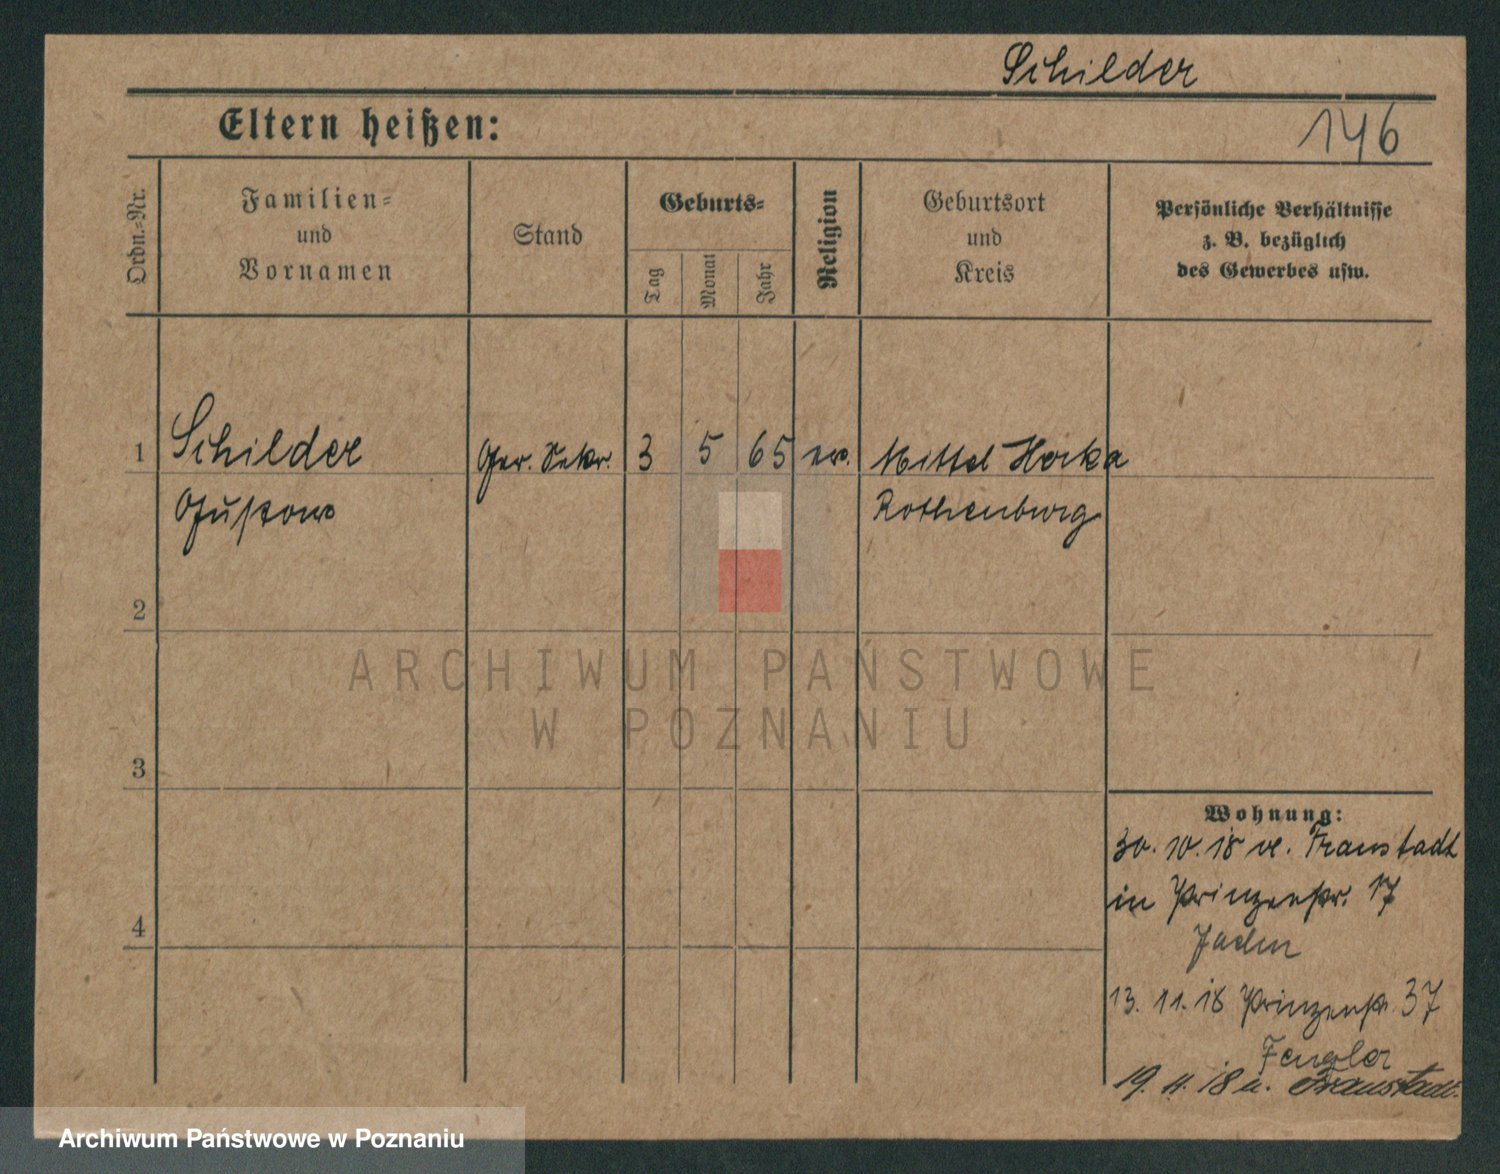 Schilder
Eltern heißen:
146
Ordn.-Nr.
Familien-
und
Vornamen
Stand
Geburts-
Tag
Monat
Jahr
Religion
Geburtsort
und
Kreis
Persönliche Verhältnisse
z. B. bezüglich
des Gewerbes usw.
1 Schilder Ger. Sekr. 3 5 65 ev. Mittel Horka
Gustav Rothenburg
2
ARCHIWUM PAŃSTWOWE
W POZNANIU
3
Wohnung:
30. 10. 18 v. Fraustadt
in Prinzenstr. 17
4
13. 11. 18 Prinzenstr. 37
Fengler
19. 11. 18 n. Fraustadt.
Archiwum Państwowe w Poznaniu